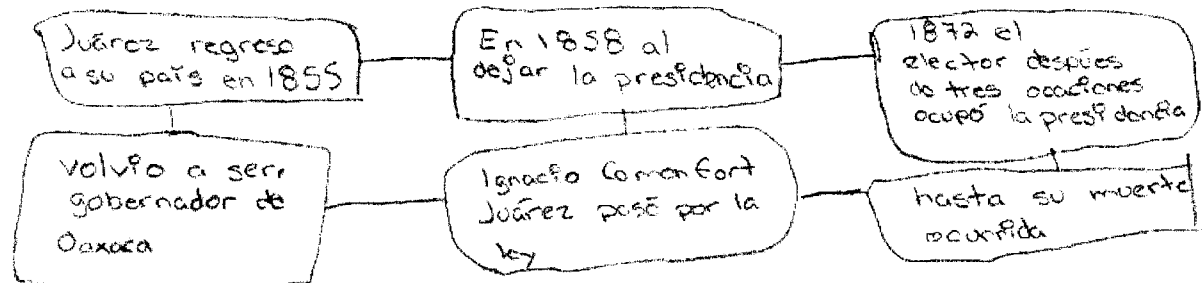 Juárez regreso
a su país en 1855
En 1858 al
dejar la presidencia
1872 el
elector despúes
de tres ocaciones
ocupó la presidencia
volvio a ser,
gobernador de
Oaxaca
Ignacio Comonfort
Juárez pasó por la
ley
hasta su muerte
ocurrida